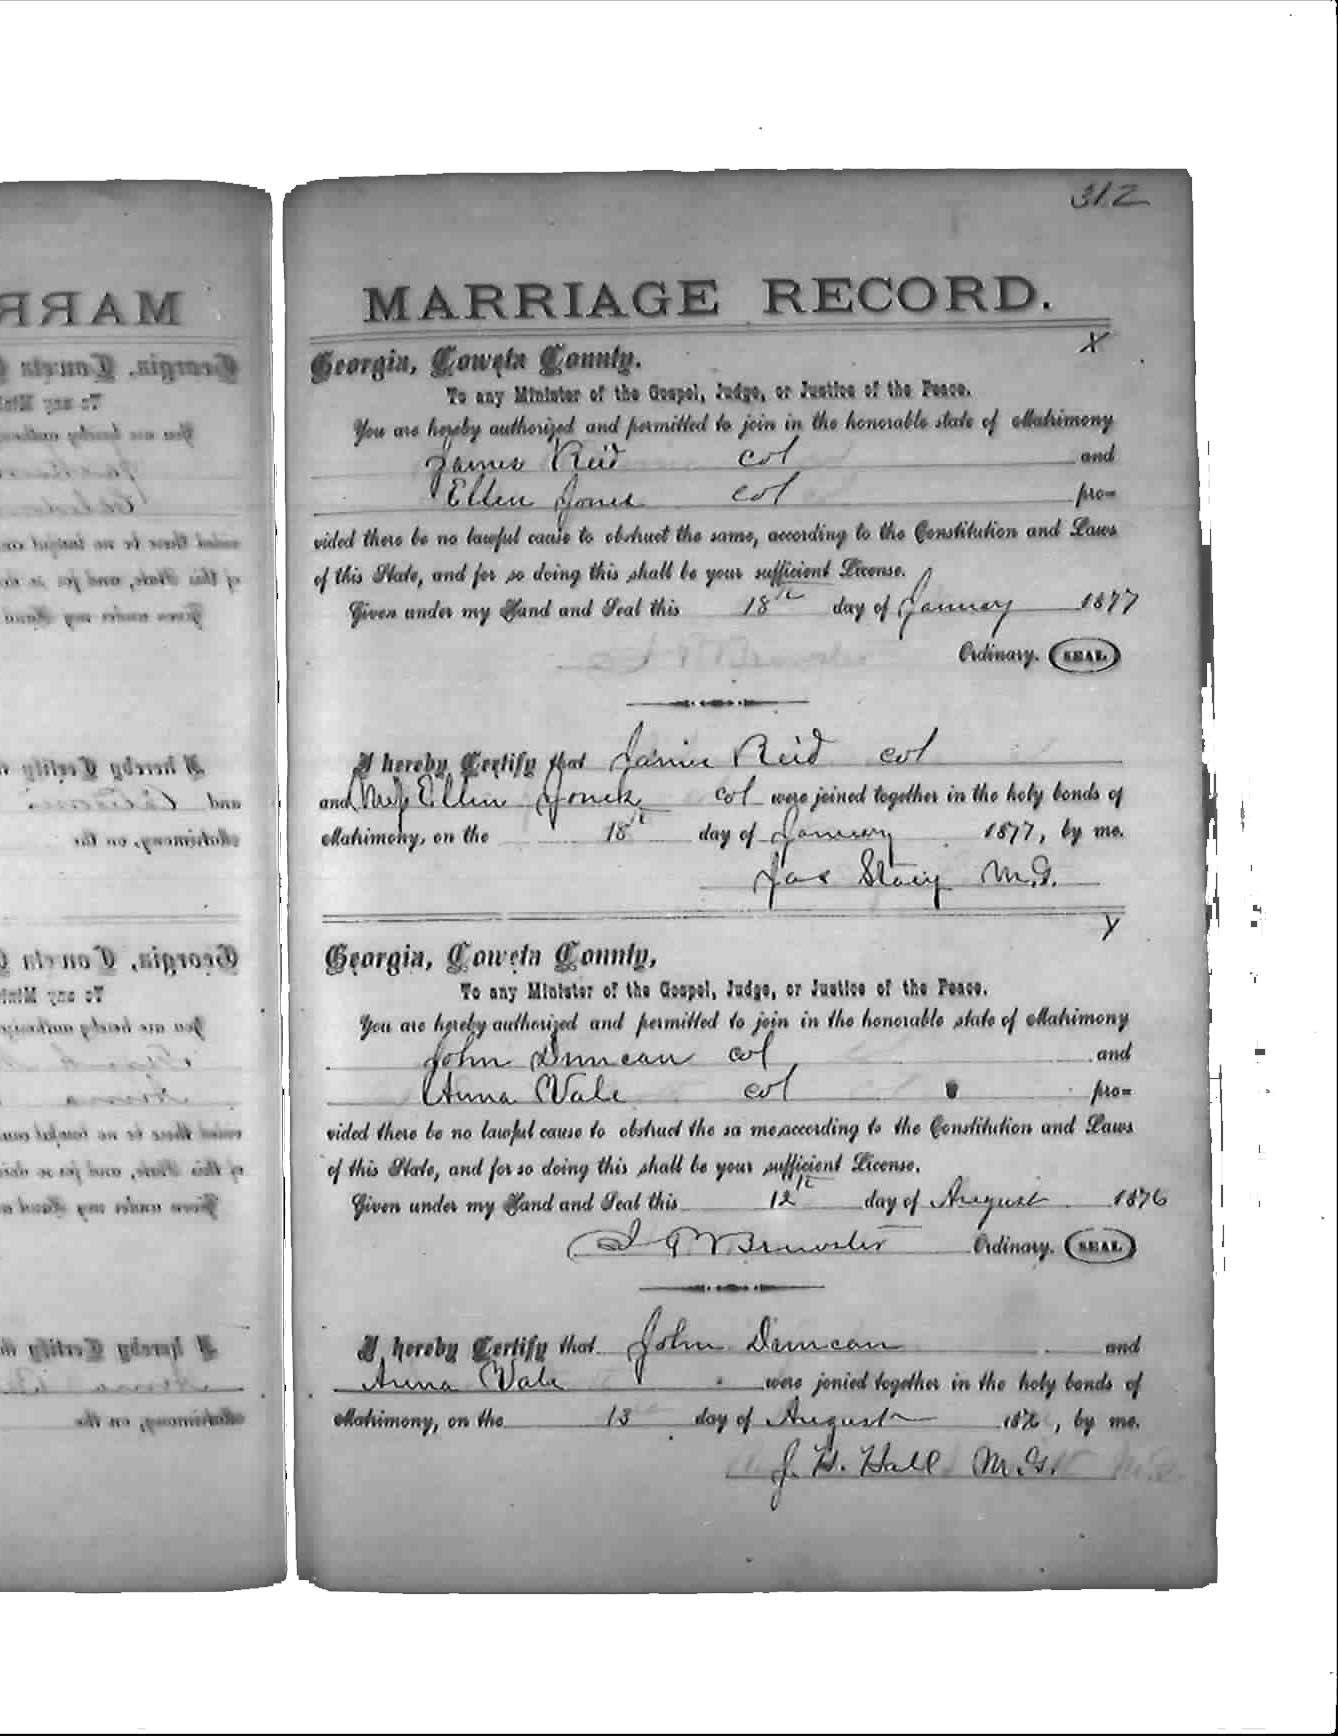 312
MARRIAGE RECORD.
X
Georgia, Coweta County.
To any Minister of the Gospel, Judge, or Justice of the Peace.
You are hereby authorized and permitted to join in the honorable state of Matrimony
James Reid col and
Ellen Jones col pro=
vided there be no lawful cause to obstruct the same, according to the Constitution and Laws
of this State, and for so doing this shall be your sufficient License.
Given under my Hand and Seal this 18th day of January 1877
Brewster Ordinary. SEAL
I hereby Certify that James Reid col
and Ellen Jones col were joined together in the holy bonds of
Matrimony, on the 18th day of January 1877, by me.
Jas Stacy M.G.
Georgia, Coweta County,
To any Minister of the Gospel, Judge, or Justice of the Peace.
You are hereby authorized and permitted to join in the honorable state of Matrimony
John Duncan col and
Anna Vale col pro=
vided there be no lawful cause to obstruct the sa me,according to the Constitution and Laws
of this State, and for so doing this shall be your sufficient License.
Given under my Hand and Seal this 12th day of August 1876
Brewster Ordinary. SEAL
I hereby Certify that John Duncan and
Anna Vale were jonied together in the holy bonds of
Matrimony, on the 13 day of August 1876, by me.
J. H. Hall M.G.